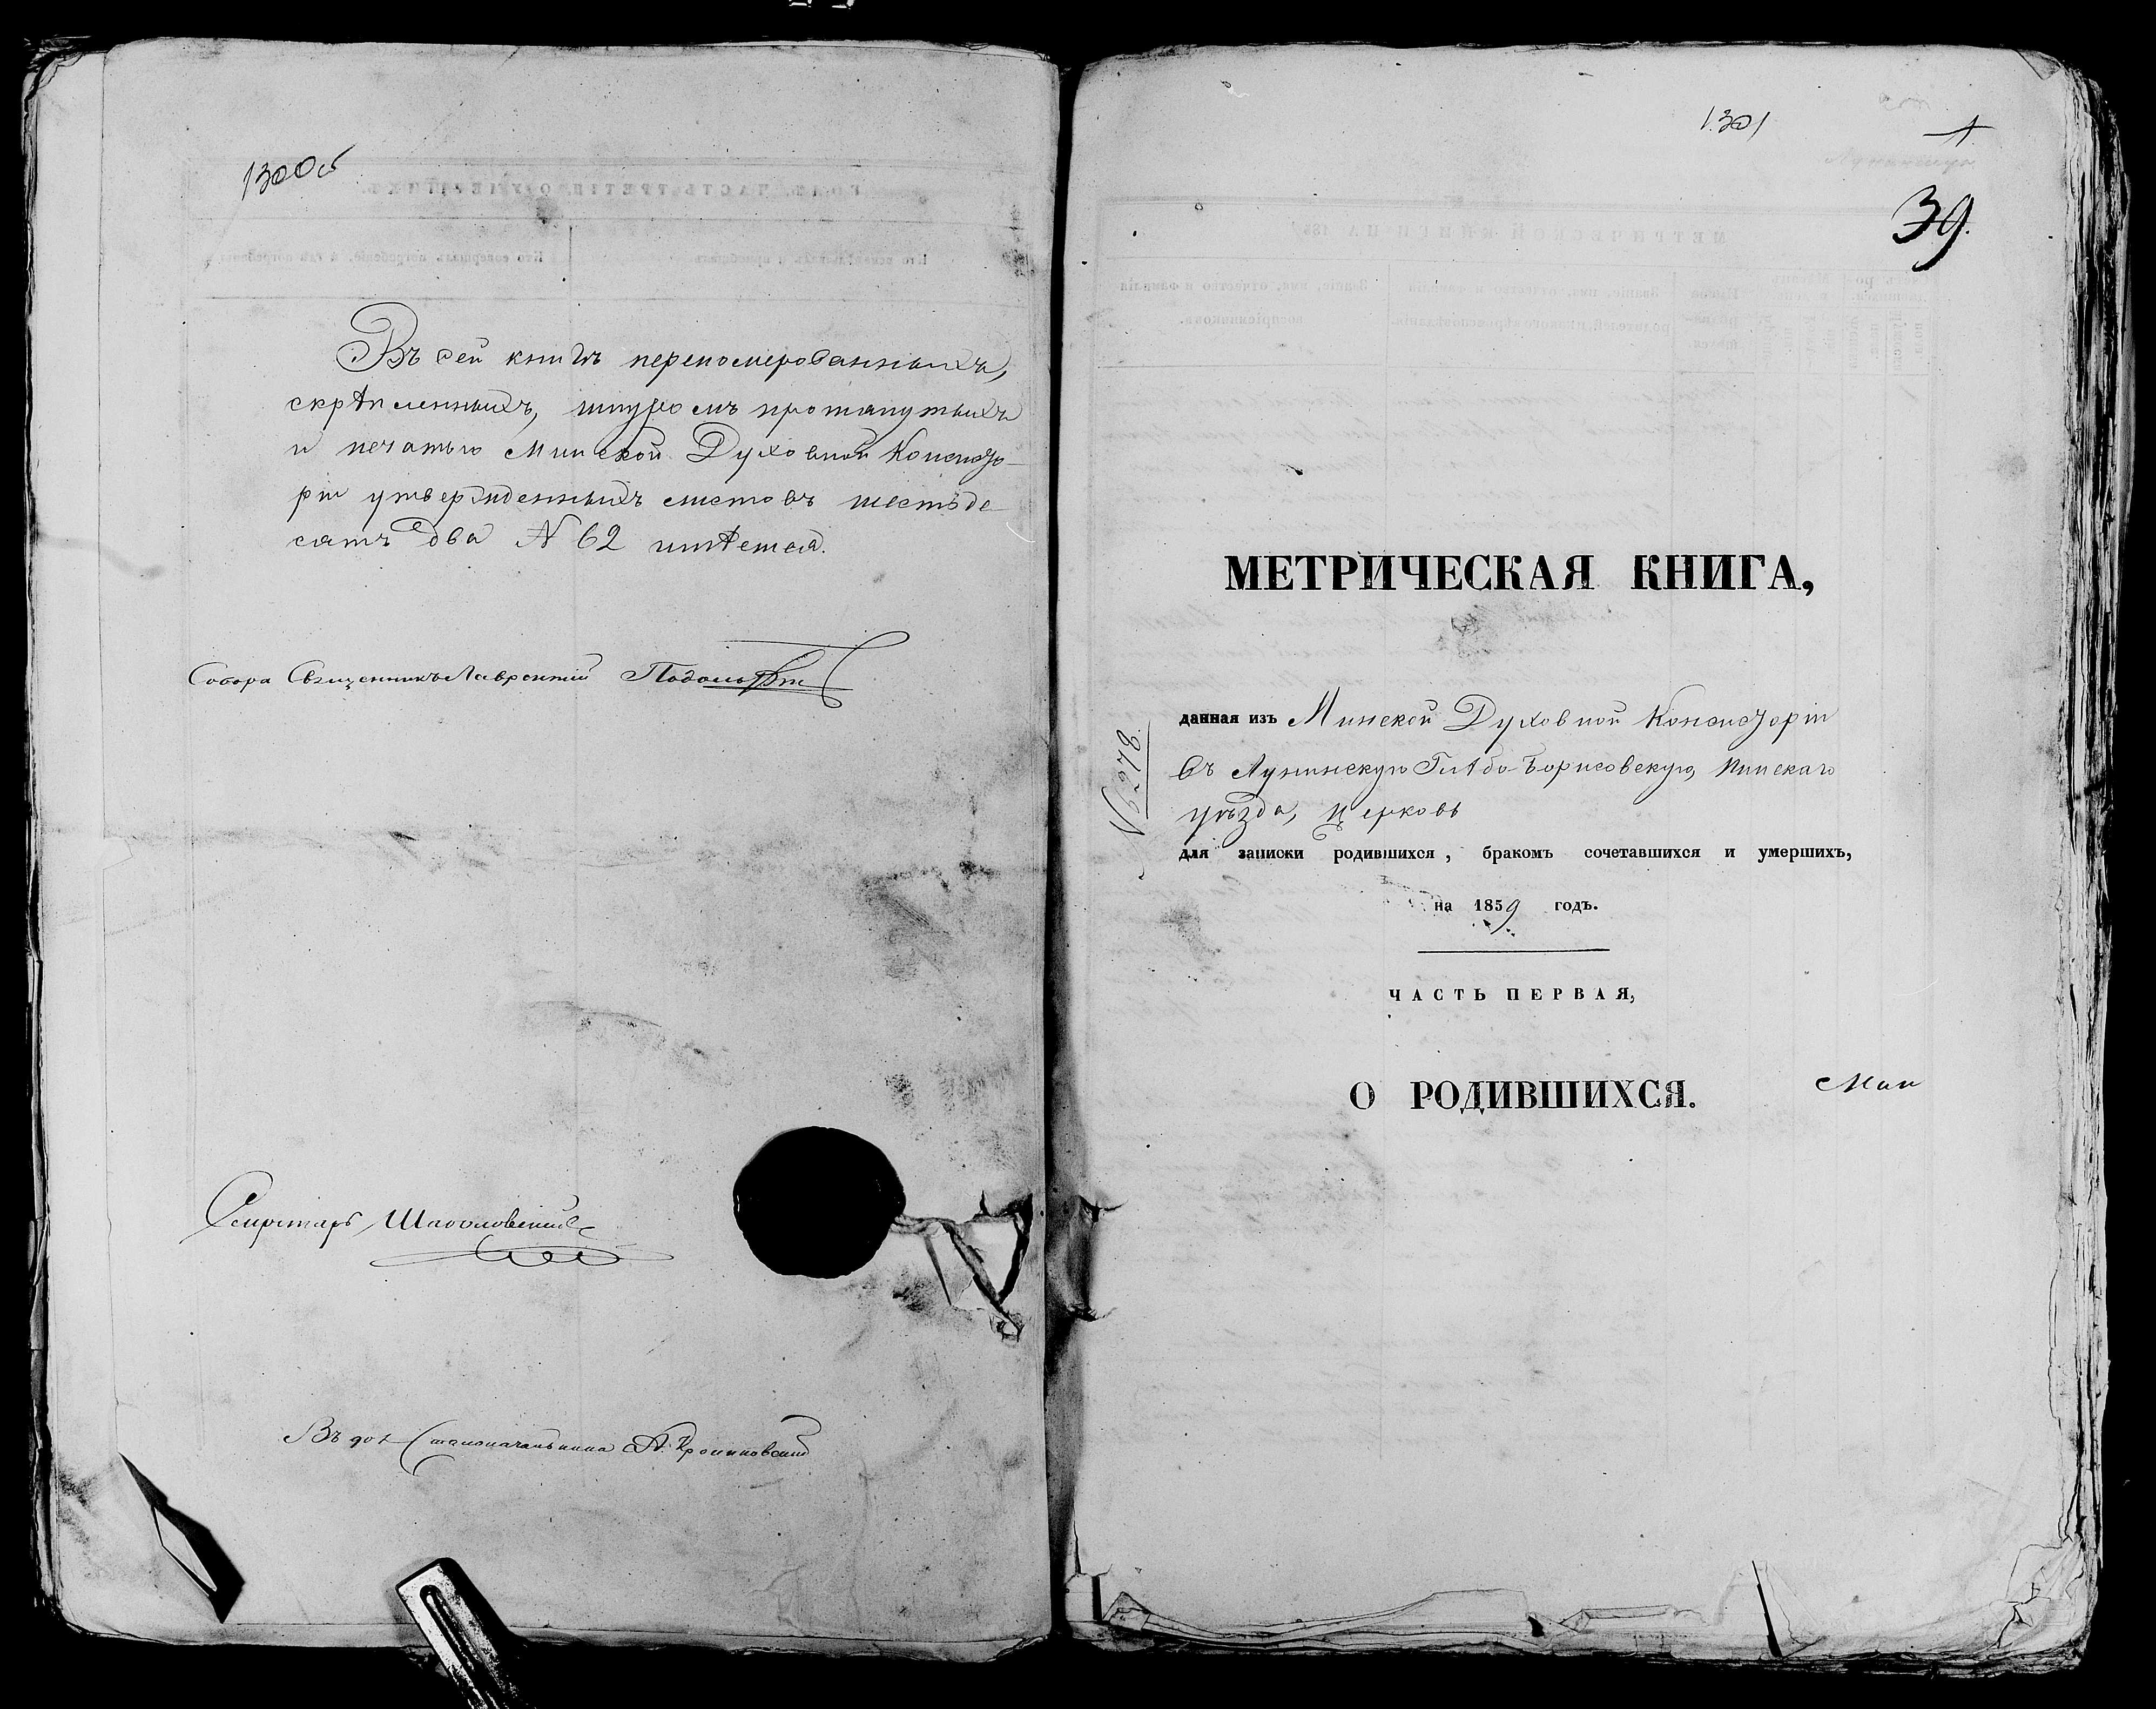 1300об
Въ сей книгѣ переномерованныхъ,
скрѣпленныхъ, шнуромъ протянутыхъ
и печатью Минской Духовной Консисто-
ріи утвержденныхъ листовъ шестьде-
сятъ два № 62 имѣется.
Собора Священникъ Лаврентій
Секретарь
Въ дол. Столоначальника А.
1301
1
39.
МЕТРИЧЕСКАЯ КНИГА,
данная изъ Минской Духовной Консисторіи
въ Лунинскую Глѣбо-Борисовскую, Пинскаго
уѣзда, Церковь
№ 278.
для записки родившихся, бракомъ сочетавшихся и умершихъ,
на 1859 годъ.
ЧАСТЬ ПЕРВАЯ,
О РОДИВШИХСЯ.
Мин